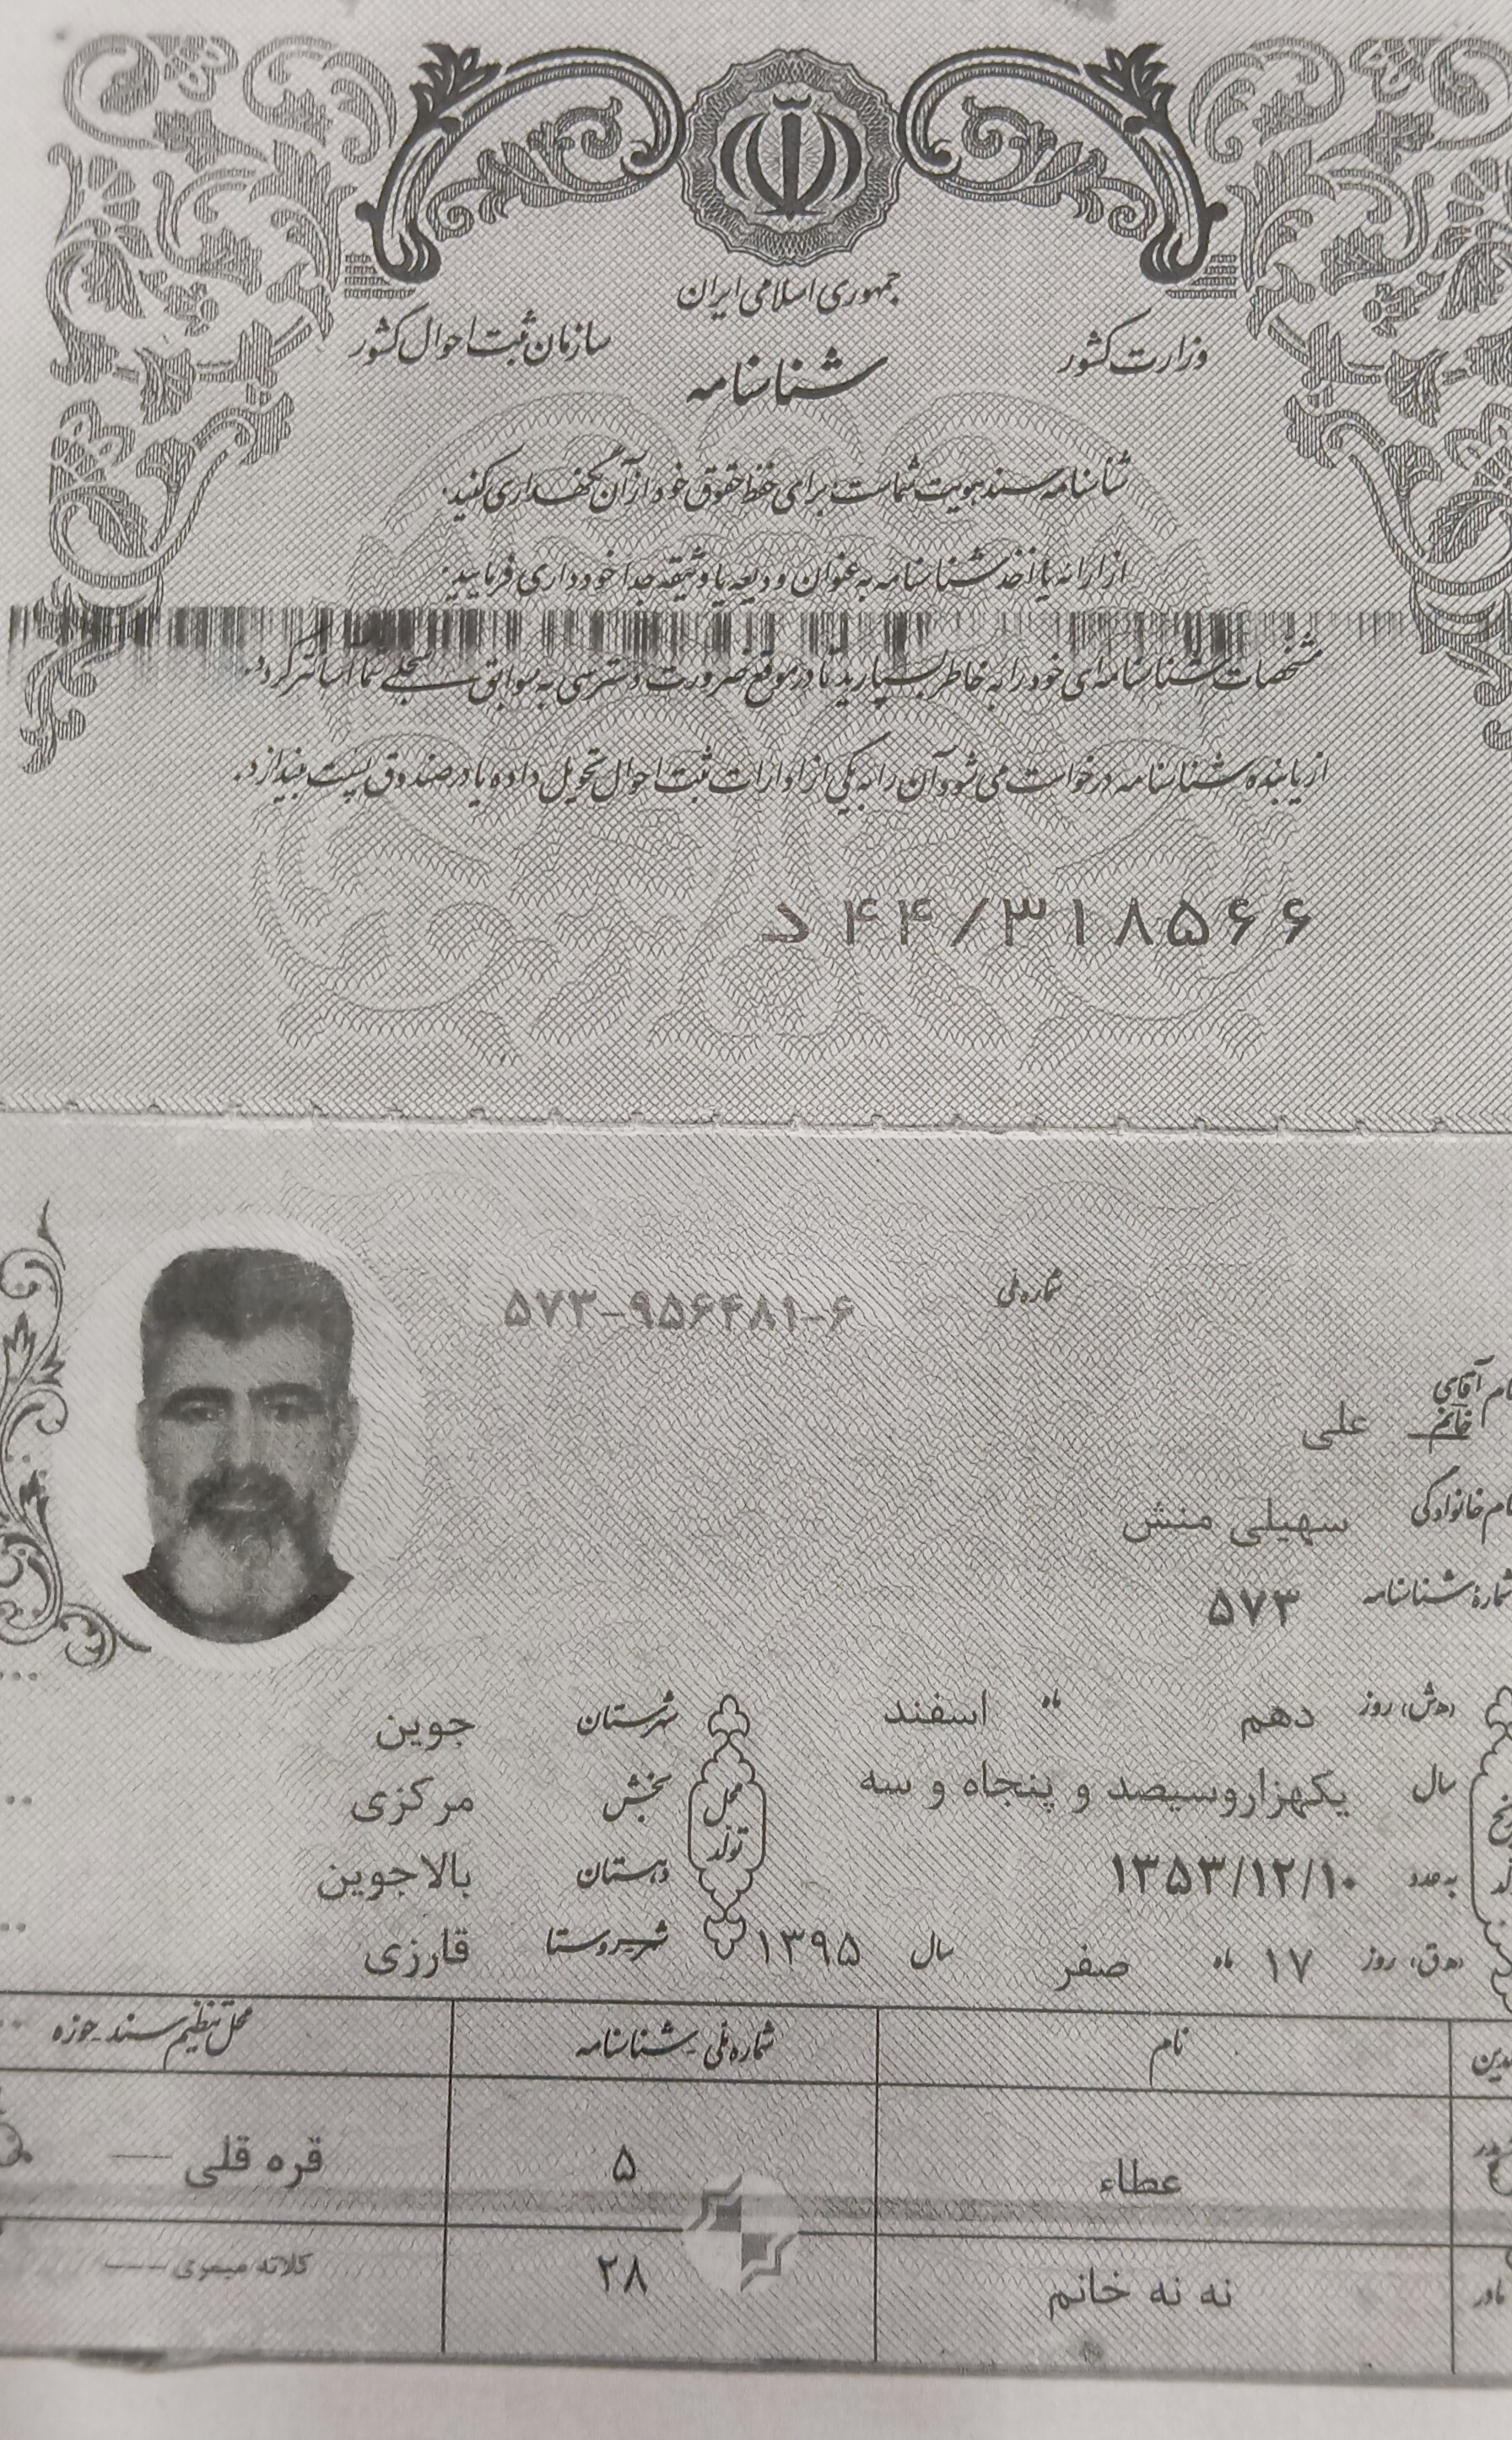 جمهوری اسلامی ایران
وزارت کشور
سازمان ثبت احوال کشور
شناسنامه
شناسنامه سند هویت شماست برای حفظ حقوق خود از آن نگهداری کنید.
از ارائه یا اخذ شناسنامه به عنوان ودیعه یا وثیقه جدا خودداری فرمایید.
مشخصات شناسنامه‌ای خود را به خاطر بسپارید تا در موقع ضرورت دسترسی به سوابق سجلی شما آسانتر گردد.
از یابنده شناسنامه درخواست می‌شود آن را به یکی از ادارات ثبت احوال تحویل داده یا در صندوق پست بیندازد.
د ۴۴/۳۱۸۵۶۶
شماره ملی ۵۷۳-۹۵۶۴۸۱-۶
آقای
خانم علی
نام خانوادگی سهیلی منش
شماره شناسنامه ۵۷۳
(ه‍.ش) روز دهم ماه اسفند
سال یکهزاروسیصد و پنجاه و سه
به عدد ۱۳۵۳/۱۲/۱۰
(ه‍.ق) روز ۱۷ ماه صفر سال ۱۳۹۵
محل تولد
شهرستان جوین
بخش مرکزی
دهستان بالاجوین
شهر-روستا قارزی
نام شماره ملی - شناسنامه محل تنظیم سند - حوزه
عطاء ۵ قره قلی —
مادر نه نه خانم ۲۸ کلاته میمری —